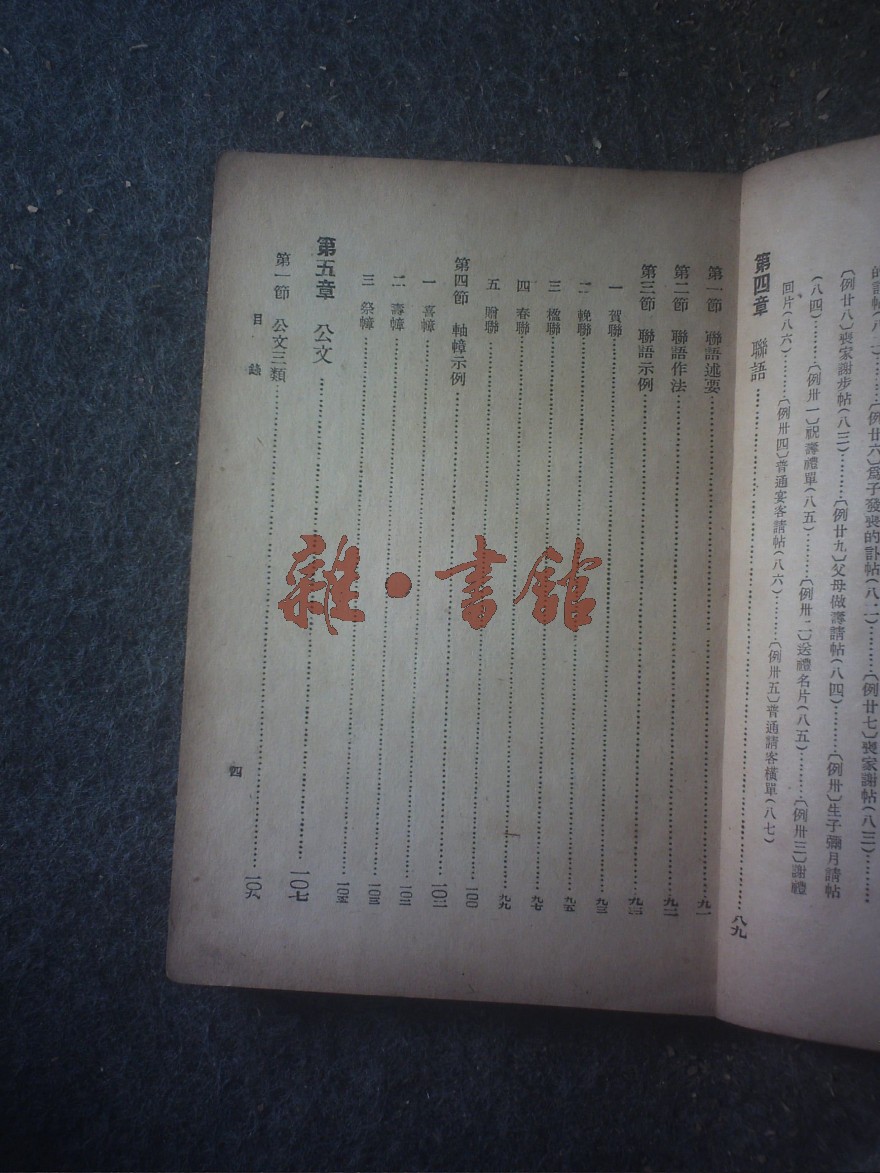 的訃帖(八二)………〔例廿六〕爲子發喪的訃帖(八二)………〔例廿七〕喪家謝帖(八三)………
〔例廿八〕喪家謝步帖(八三)………〔例廿九〕父母做壽請帖(八四)………〔例卅〕生子彌月請帖
(八四)………〔例卅一〕祝壽禮單(八五)………〔例卅二〕送禮名片(八五)………〔例卅三〕謝禮
回片(八六)………〔例卅四〕普通宴客請帖(八六)………〔例卅五〕普通請客橫單(八七)
第四章 聯語………八九
第一節 聯語述要………九一
第二節 聯語作法………九二
第三節 聯語示例………九三
一 賀聯………九三
二 輓聯………九五
三 楹聯………九五
四 春聯………九七
五 贈聯………九九
第四節 軸幛示例………一〇〇
一 喜幛………一〇二
二 壽幛………一〇二
三 祭幛………一〇三
第五章 公文………一〇七
第一節 公文三類………
目錄
四
雜·書館